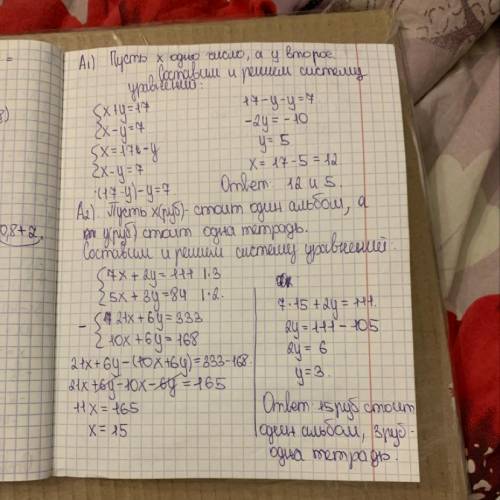 А1) Пусть x одно число, а y второе
Составим и решим систему
уравнений:
{x+y=17
{x-y=7
{x=17-y
{x-y=7
(17-y)-y=7
17-y-y=7
-2y=-10
y=5
x=17-5=12
Ответ: 12 и 5.
А2) Пусть x(руб)- стоит один альбом, а
y(руб) стоит одна тетрадь.
Составим и решим систему уравнений:
{7x+2y=111 |·3
{5x+3y=84 |·2
-{21x+6y=333
{10x+6y=168
21x+6y-(10x+6y)=333-168
21x+6y-10x-6y=165
11x=165
x=15
7·15+2y=111
2y=111-105
2y=6
y=3.
Ответ: 15руб стоит
один альбом, 3руб-
одна тетрадь.
0,8+2